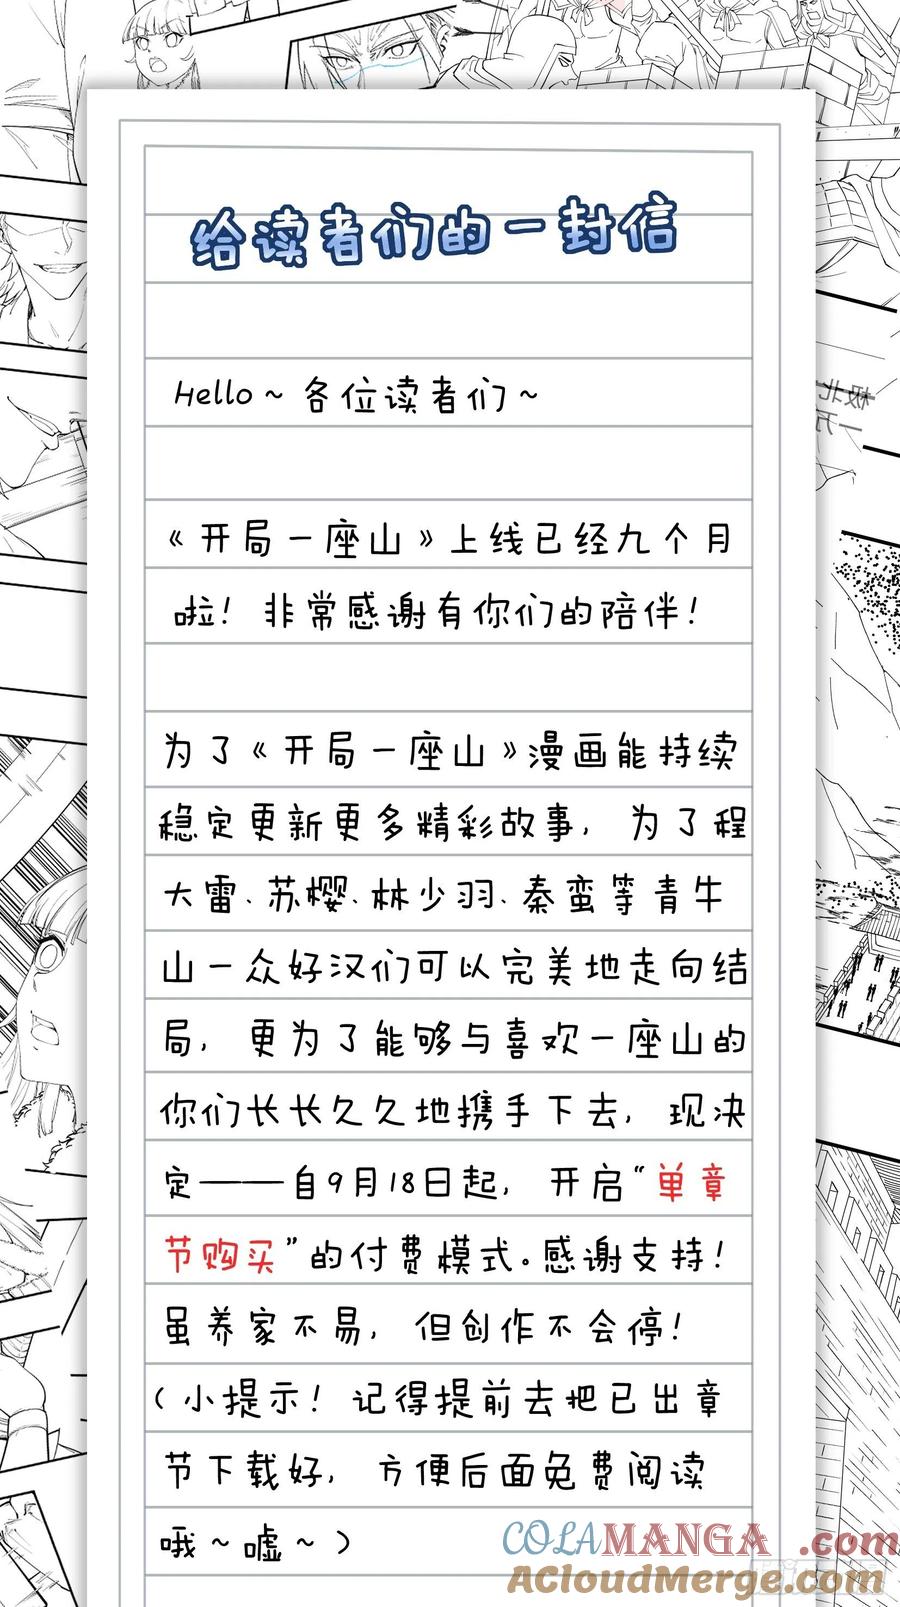 给读者们的一封信
Hello～各位读者们～
《开局一座山》上线已经九个月
啦！非常感谢有你们的陪伴！
为了《开局一座山》漫画能持续
稳定更新更多精彩故事，为了程
大雷、苏樱、林少羽、秦蛮等青牛
山一众好汉们可以完美地走向结
局，更为了能够与喜欢一座山的
你们长长久久地携手下去，现决
定——自9月18日起，开启“单章
节购买”的付费模式。感谢支持！
虽养家不易，但创作不会停！
（小提示！记得提前去把已出章
节下载好，方便后面免费阅读
哦～嘘～）
COLAMANGA.com
ACloudMerge.com